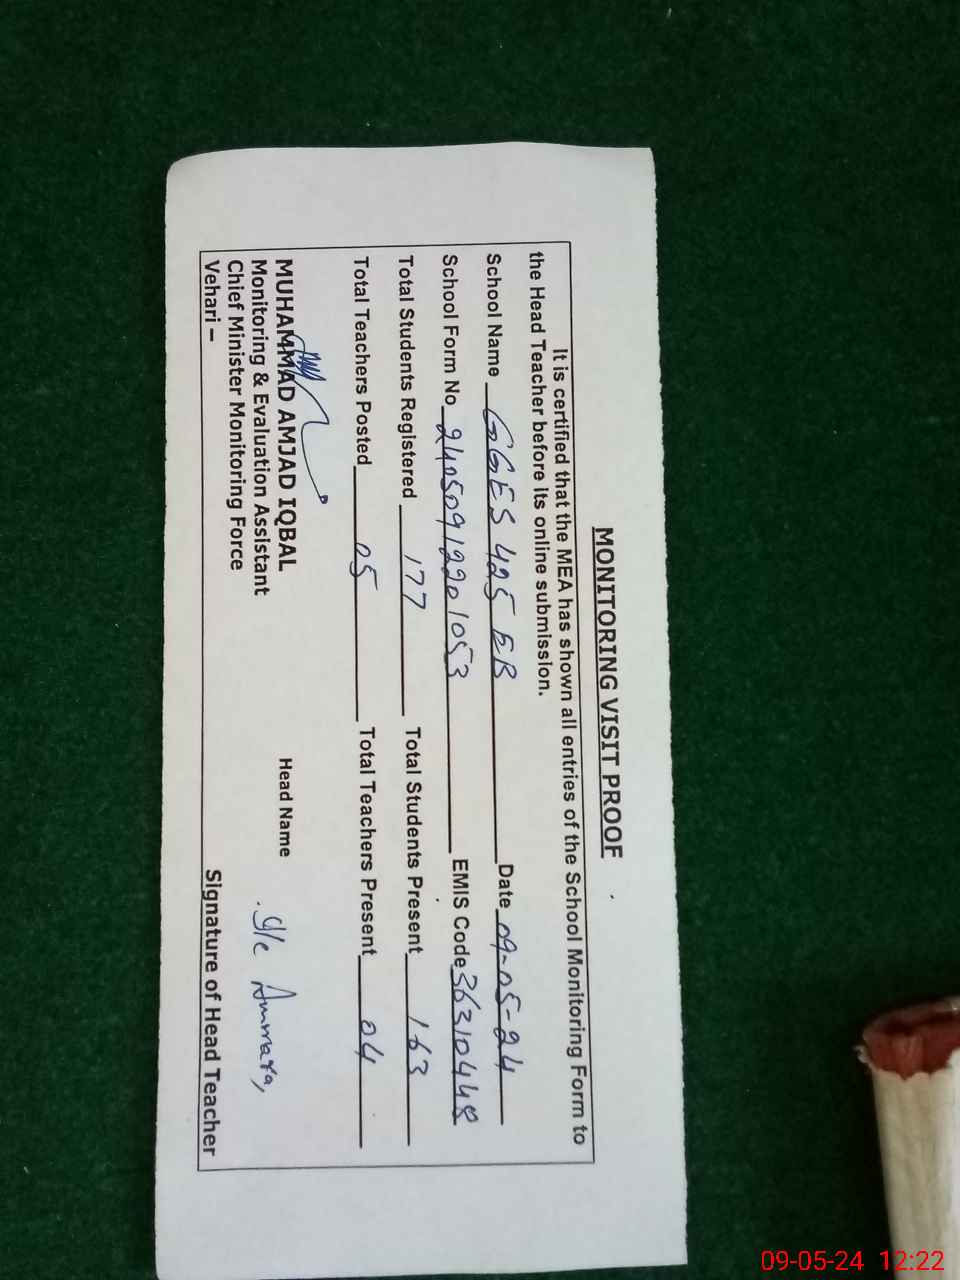 MONITORING VISIT PROOF
It is certified that the MEA has shown all entries of the School Monitoring Form to
the Head Teacher before its online submission.
School Name GGES 425 EB Date 09-05-24
School Form No 24050912201053 EMIS Code 36310448
Total Students Registered 177 Total Students Present 163
Total Teachers Posted 05 Total Teachers Present 04
MUHAMMAD AMJAD IQBAL Head Name I/c Ammara,
Monitoring & Evaluation Assistant
Chief Minister Monitoring Force
Vehari – Signature of Head Teacher
09-05-24 12:22